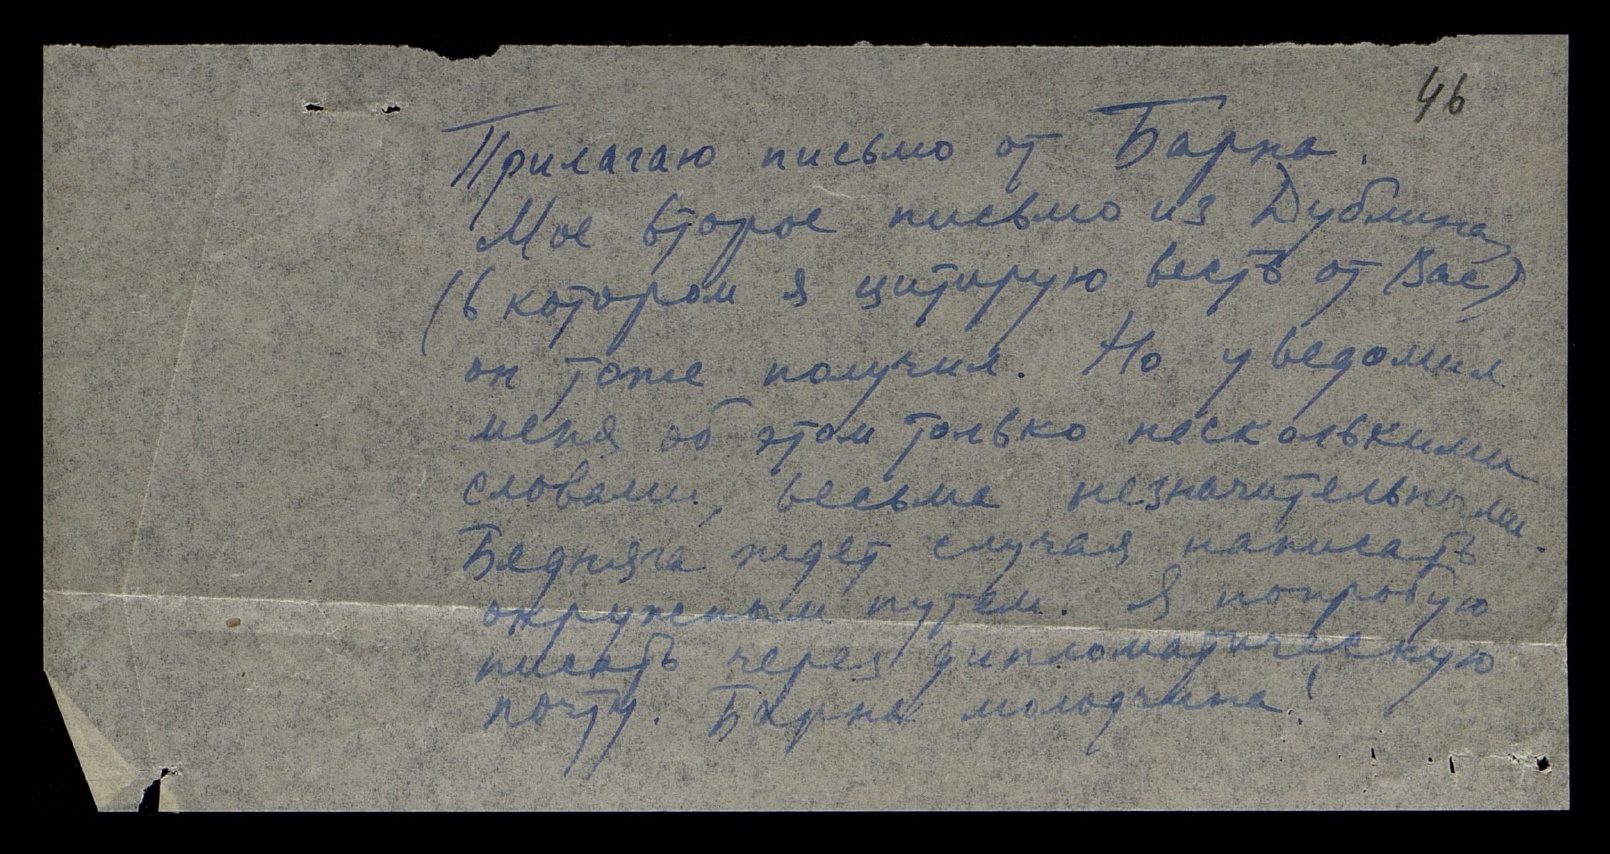 46
Прилагаю письмо от Барна.
Мое второе письмо из Дублина
(в котором я цитирую весть от Вас)
он тоже получил. Но уведомил
меня об этом только несколькими
словами, весьма незначительными.
Бедняга ждет случая написать
окружным путем. Я попробую
писать через дипломатическую
почту. Барна молодчина!